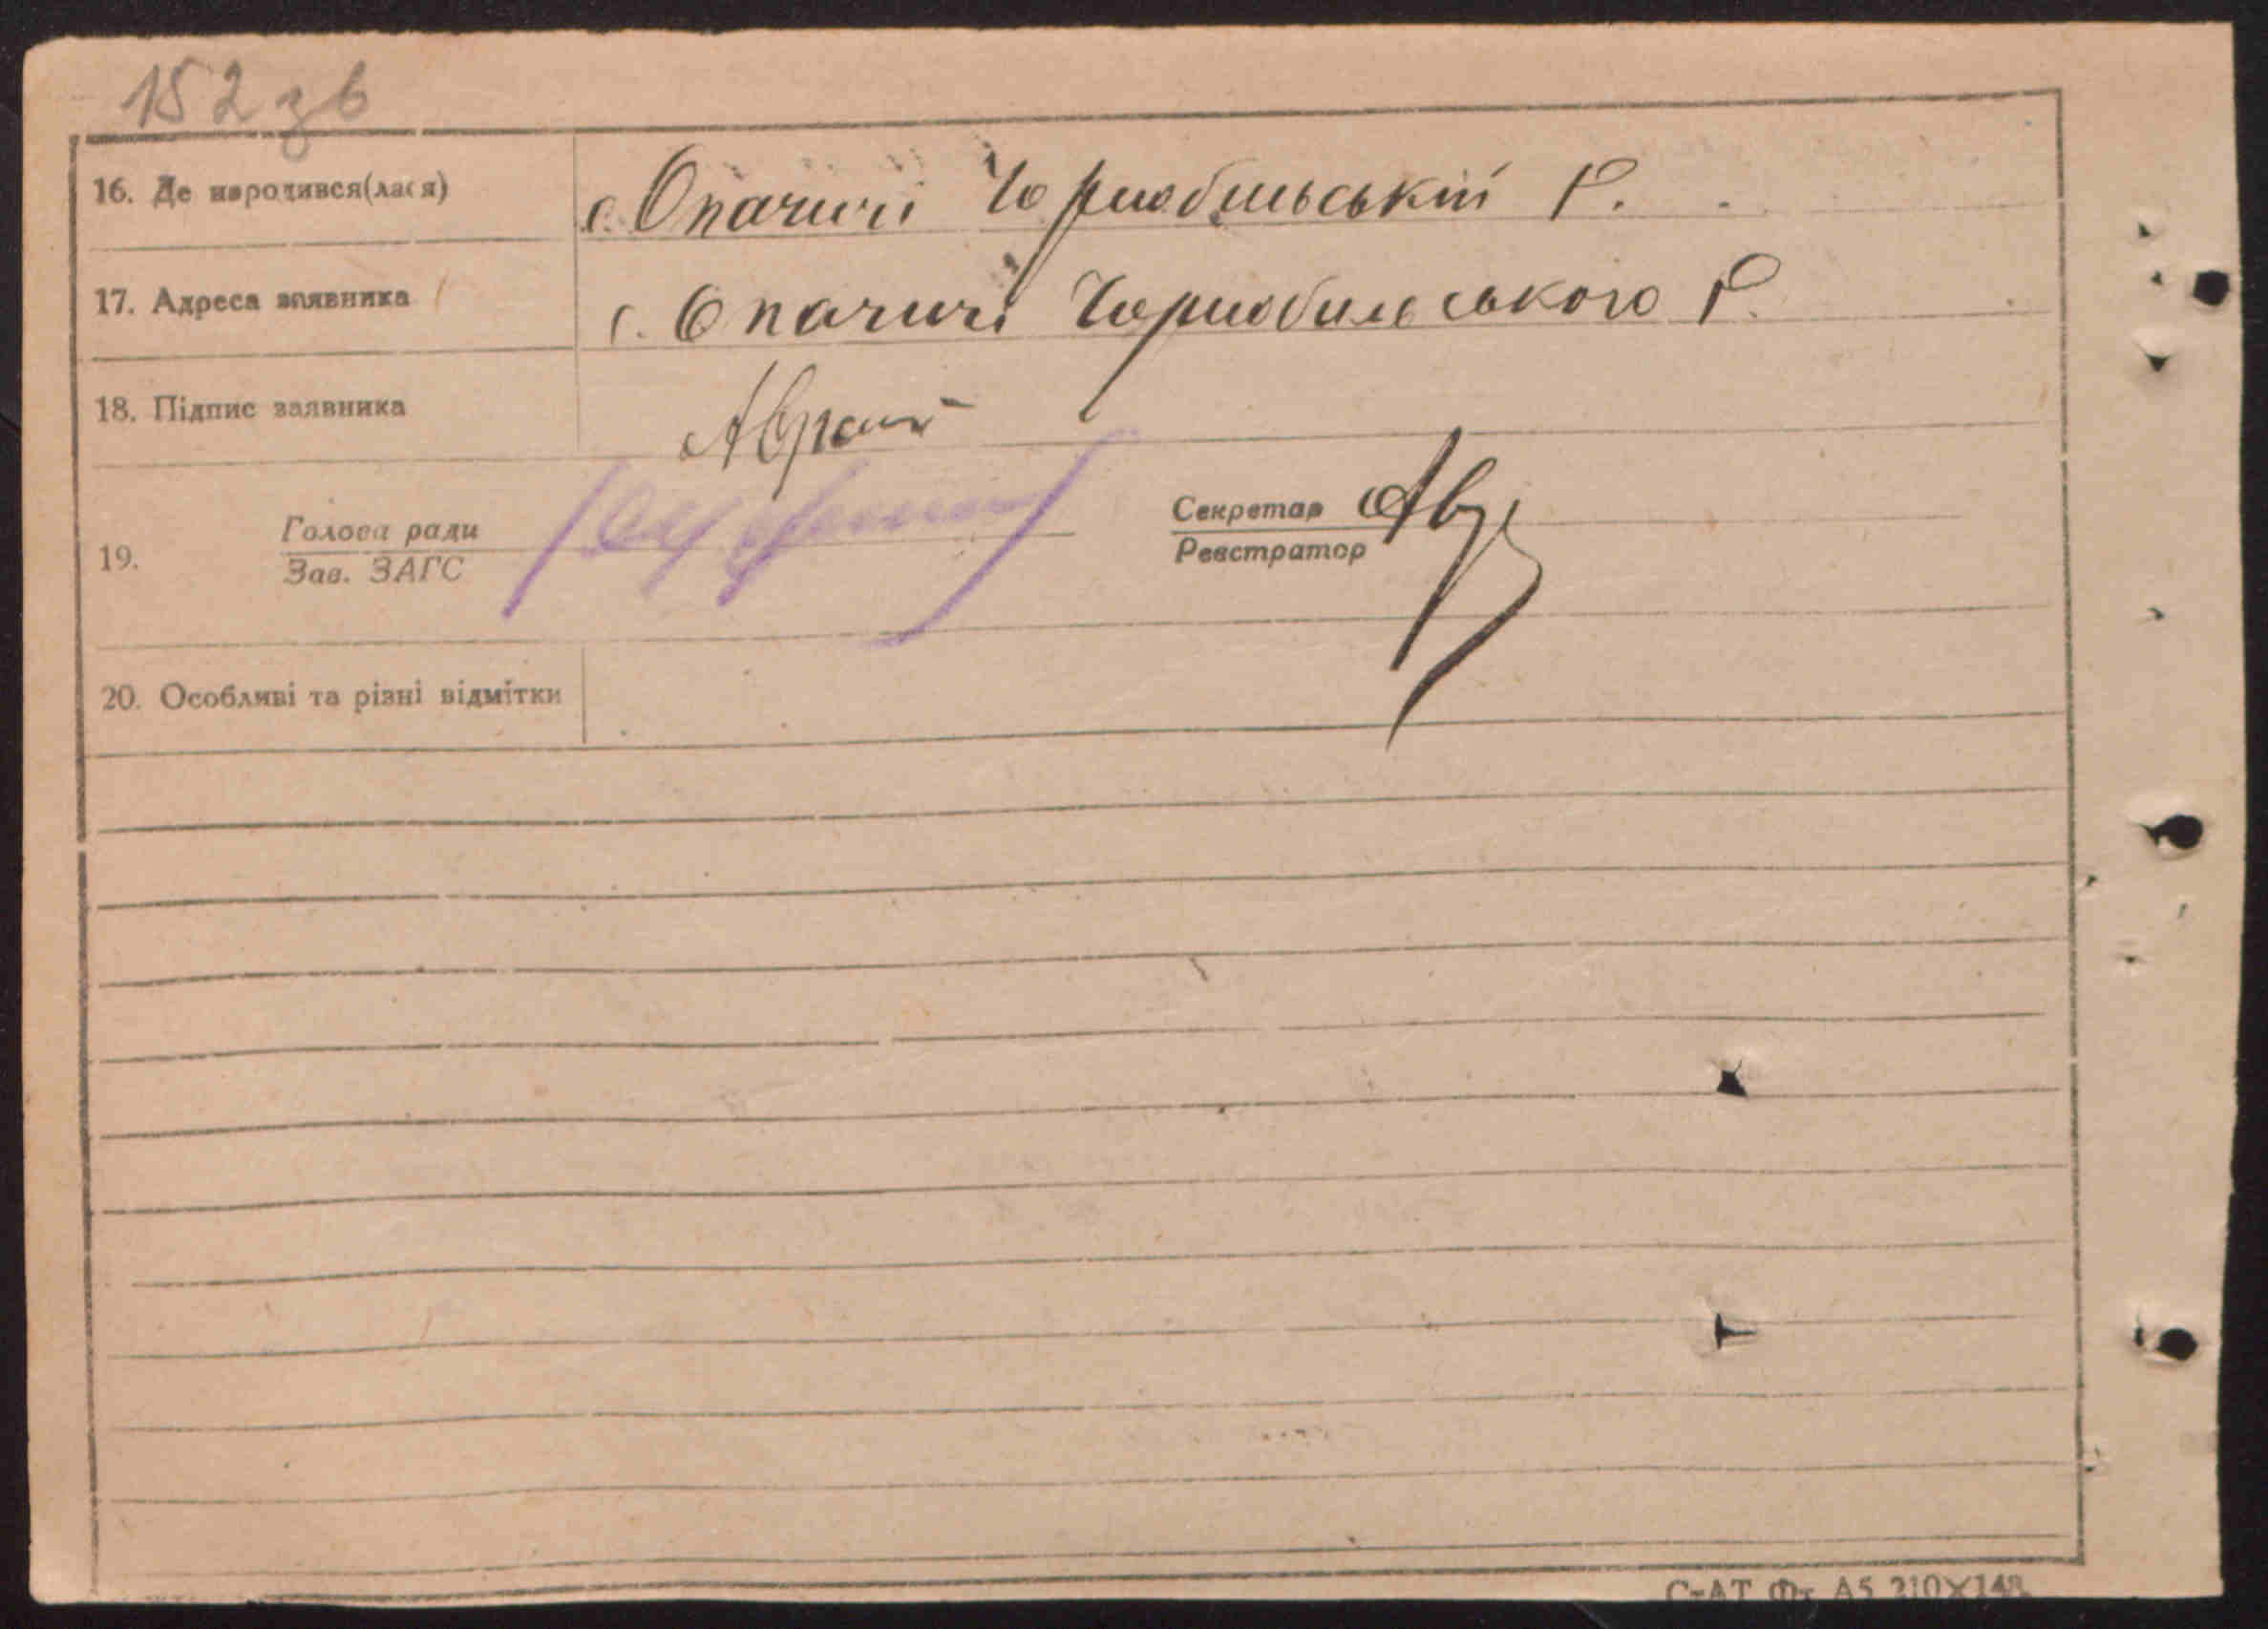 152 зв
16. Де народився(лася) с. Опачичі Чорнобильській Р.
17. Адреса заявника с. Опачичі Чорнобильського Р.
18. Підпис заявника
19. Голова ради Секретар
Зав. ЗАГС Реєстратор
20. Особливі та різні відмітки
СтАТ Фт А5 210×148